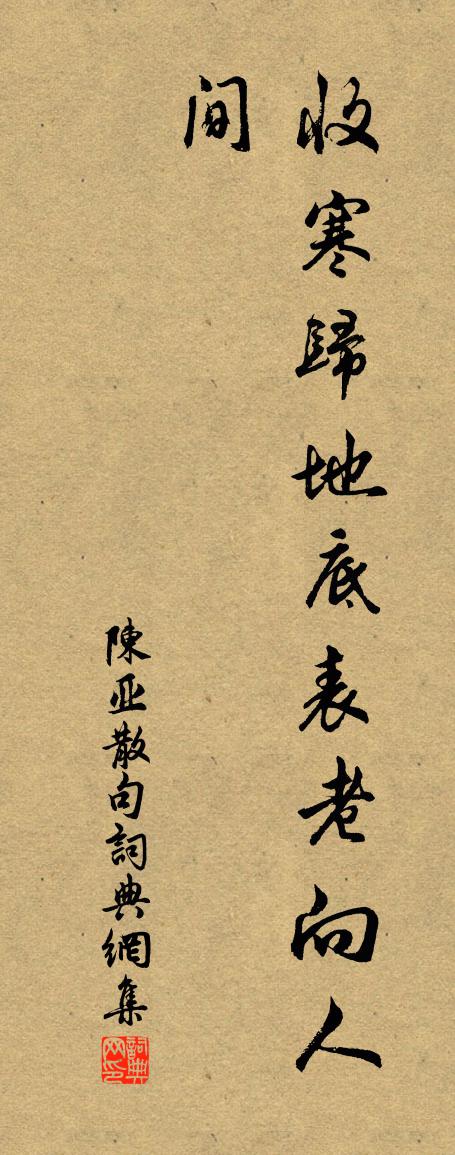 收寒歸地底表老向人
间
陳亚散句詞典網集
詞典网印